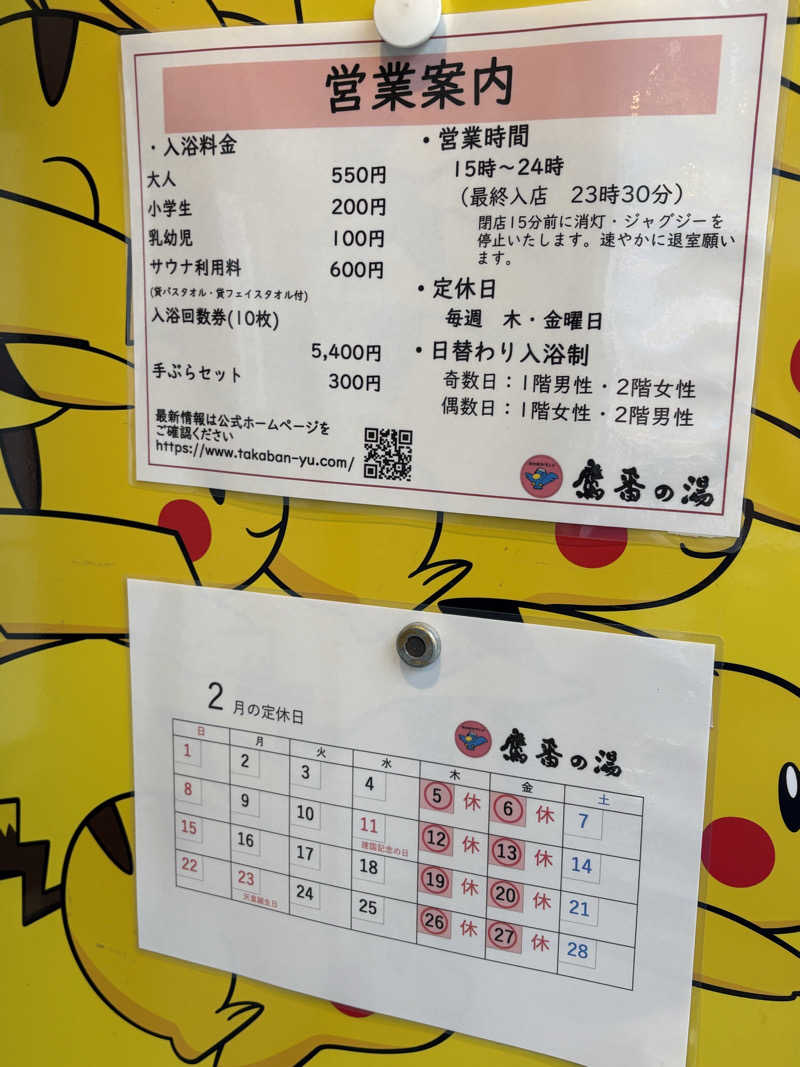 営業案内
・入浴料金
大人 550円
小学生 200円
乳幼児 100円
サウナ利用料 600円
(貸バスタオル・貸フェイスタオル付)
入浴回数券(10枚)
5,400円
手ぶらセット 300円
最新情報は公式ホームページを
ご確認ください
https://www.takaban-yu.com/
・営業時間
15時～24時
(最終入店 23時30分)
閉店15分前に消灯・ジャグジーを
停止いたします。速やかに退室願い
ます。
・定休日
毎週 木・金曜日
・日替わり入浴制
奇数日：1階男性・2階女性
偶数日：1階女性・2階男性
鷹番の湯
2月の定休日
鷹番の湯
日 月 火 水 木 金 土
1 2 3 4 5 休 6 休 7
8 9 10 11 12 休 13 休 14
建国記念の日
15 16 17 18 19 休 20 休 21
22 23 24 25 26 休 27 休 28
天皇誕生日